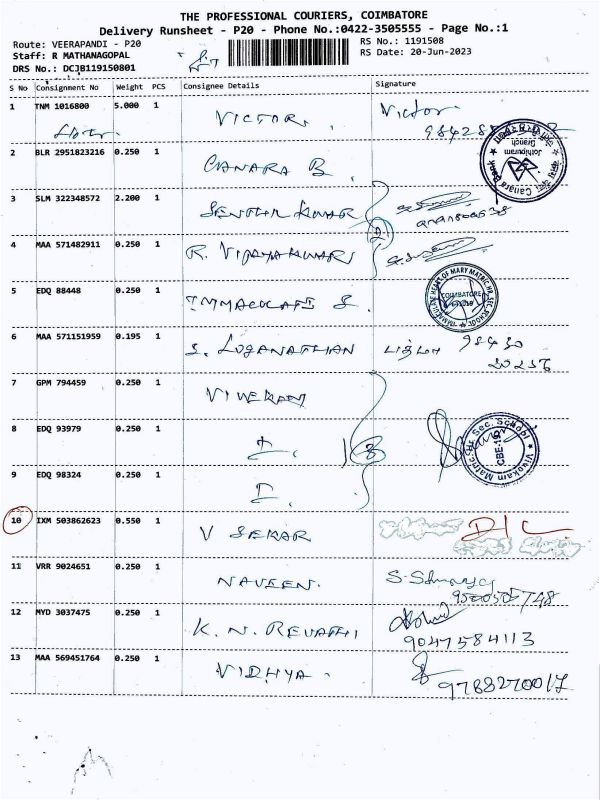 THE PROFESSIONAL COURIERS, COIMBATORE
Delivery Runsheet - P20 - Phone No.:0422-3505555 - Page No.:1
Route: VEERAPANDI - P20 RS No.: 1191508
Staff: R MATHANAGOPAL RS Date: 20-Jun-2023
DRS No.: DCJB119150801
S No Consignment No Weight PCS Consignee Details Signature
1 TNM 1016800 5.000 1 VICTOR Victor
2 BLR 2951823216 0.250 1 CANARA B.
Canara Bank Jothipuram Branch
3 SLM 322348572 2.200 1 SENTHIL KUMAR
4 MAA 571482911 0.250 1 R. VIJAYAKUMARI
5 EDQ 88448 0.250 1 IMMACULATE S.
IMMACULATE HEART OF MARY MATRIC HR. SEC. SCHOOL COIMBATORE
6 MAA 571151959 0.195 1 S. LOGANATHAN பத்மா 98430
20256
7 GPM 794459 0.250 1 VIVEKAM
8 EDQ 93979 0.250 1 I. 3
Vivekam Matric Hr. Sec. School CBE-19
9 EDQ 98324 0.250 1 I.
10 IXM 503862623 0.550 1 V SEKAR D/C
11 VRR 9024651 0.250 1 NAVEEN.
12 MYD 3037475 0.250 1 K. N. REVATHI
9047584113
13 MAA 569451764 0.250 1 VIDHYA.
9788270017